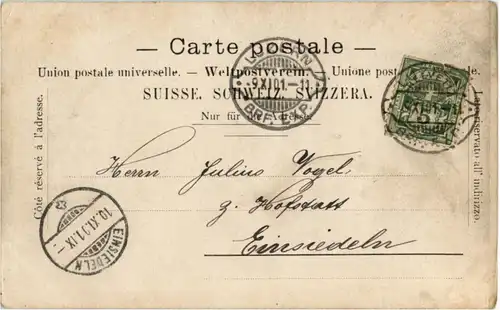 — Carte postale —
Union postale universelle. — Weltpostverein. — Unione postale universale.
SUISSE. SCHWEIZ. SVIZZERA.
Nur für die Adresse.
Côté réservé à l'adresse.
Lato riservato all' indirizzo.
LUZERN
-9.XI.01.-11
BRF. EXP.
5
Herrn Julius Vogel
z. Hofstatt
Einsiedeln
10.XI.01.IX-
EINSIEDELN